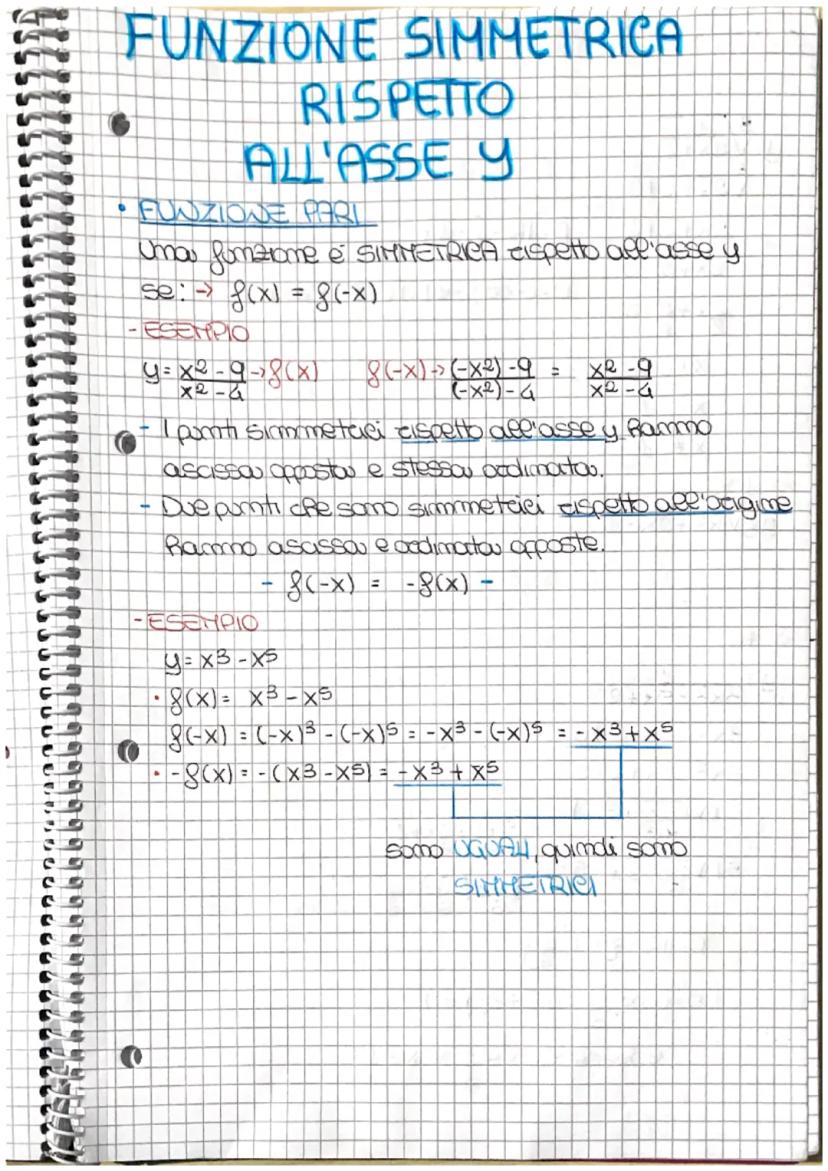 FUNZIONE SIMMETRICA
RISPETTO
ALL'ASSE y
• FUNZIONE PARI
Una funzione è SIMMETRICA rispetto all'asse y
se: → f(x) = f(-x)
- ESEMPIO
y = x² - 9 / x² - 4 → f(x) f(-x) → (-x²) - 9 / (-x²) - 4 = x² - 9 / x² - 4
- I punti simmetrici rispetto all'asse y hanno
ascissa opposta e stessa ordinata.
- Due punti che sono simmetrici rispetto all'origine
hanno ascissa e ordinata opposte.
- f(-x) = -f(x) -
- ESEMPIO
y = x³ - x⁵
• f(x) = x³ - x⁵
f(-x) = (-x)³ - (-x)⁵ = -x³ - (-x)⁵ = -x³ + x⁵
• -f(x) = -(x³ - x⁵) = -x³ + x⁵
sono UGUALI, quindi sono
SIMMETRICI